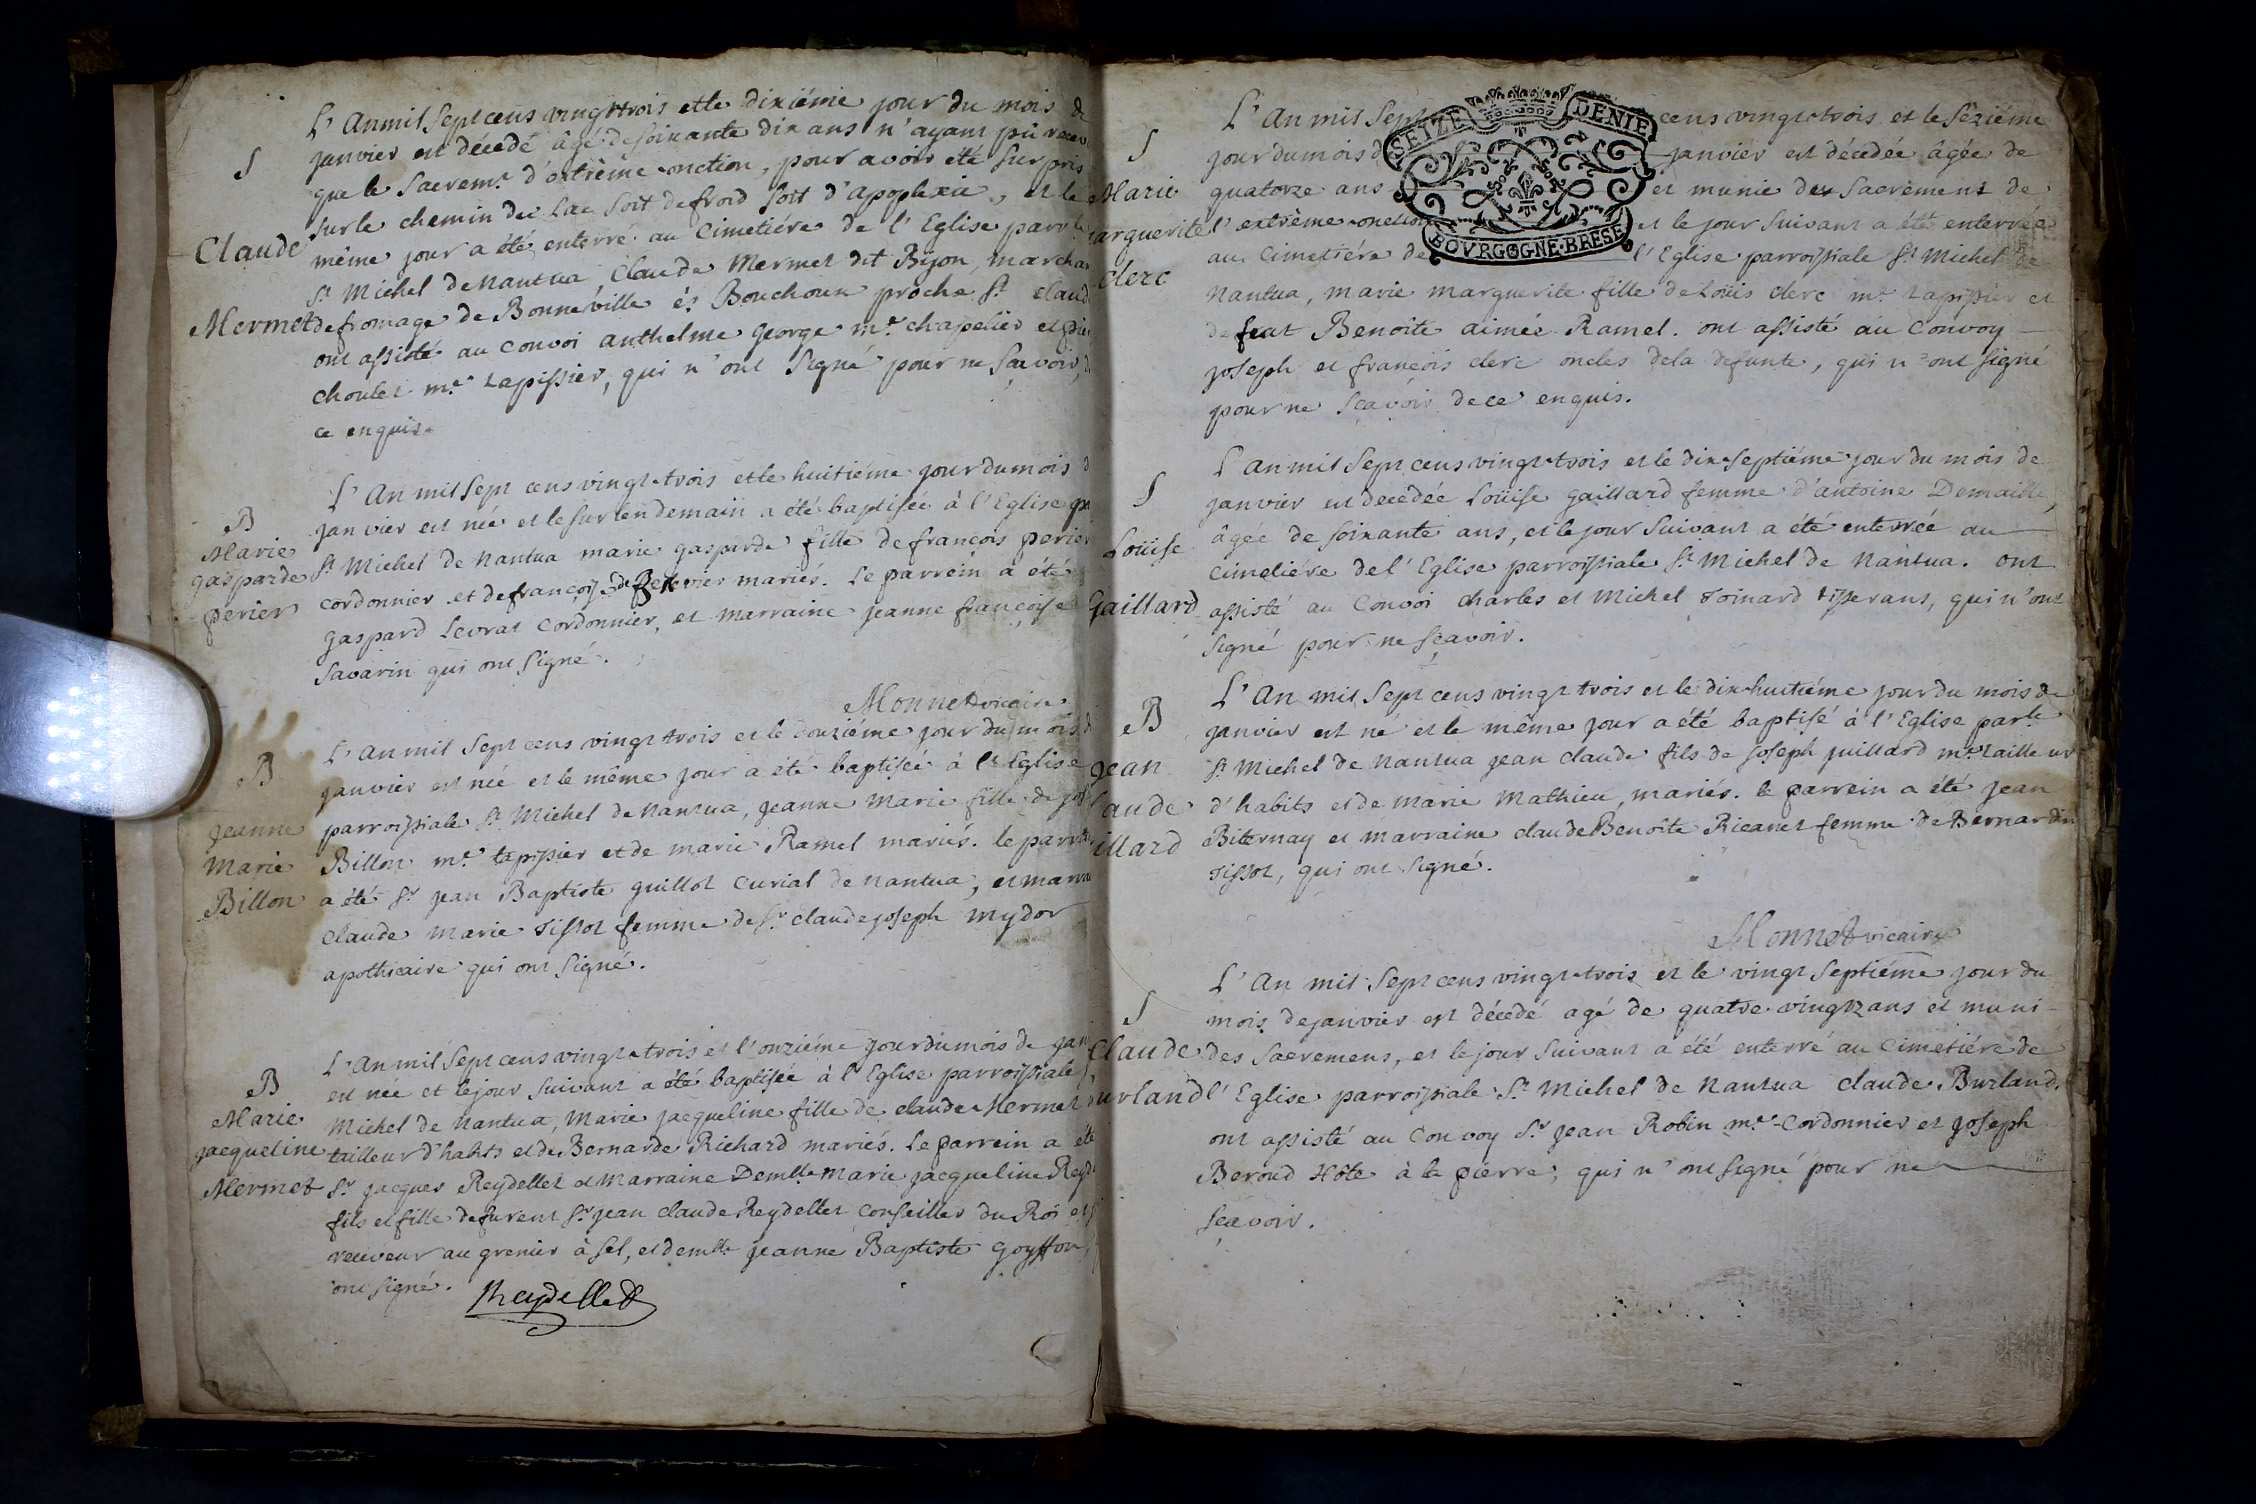 L'An mil Sept cens vingt trois et le dixiéme jour du mois de
S
janvier est décedé âgé de soixante dix ans n'ayant pû recev
que le Sacrem.t d'extrême-onction, pour avoir été surpris
sur le chemin du Lac soit de froid soit d'apoplexie, et le
Claude
même jour a été enterré au Cimetiére de l'Eglise parr.le
St Michel de Nantua Claude Mermet dit Byon, marchan
Mermet
de fromage de Bonneville és Bouchoux proche St Claud
ont assisté au convoi anthelme George m.e chapelier et pier
choulet m.e tapissier, qui n'ont Signé pour ne savoir, d
ce enquis.
L'An mil Sept cens vingt-trois et le huitiéme jour du mois d
B
janvier est née et le surlendemain a été baptisée à l'Eglise
Marie
gasparde
perier
St Michel de Nantua marie gasparde fille de françois perier
cordonnier et de françoise mariés. Le parrein a été
gaspard Levrat cordonnier, et marraine jeanne françoise
Savarin qui ont signé.
Monnet vicaire
L'an mil Sept cens vingt trois et le douziéme jour du mois d
B
janvier est née et le même jour a été baptisée à l'Eglise
jeanne
marie
Billon
parroissiale St Michel de Nantua, jeanne Marie fille de jos
Billon m.e tapissier et de marie Ramel mariés. le parrein
a été Sr jean Baptiste guillot curial de nantua, et marra
Claude Marie Tissot femme de Sr claude joseph mydor
apothicaire qui ont signé.
L'An mil Sept cens vingt-trois et l'onziéme jour du mois de jan
B
est née et le jour suivant a été baptisée à l'Eglise parroissiale
Marie
jacqueline
Mermet
Michel de Nantua, Marie jacqueline fille de claude Mermet
tailleur d'habits et de Bernarde Richard mariés. Le parrein a été
Sr jacques Reydellet et Marraine Dem.lle Marie jacqueline Reyd
fils et fille de furent Sr jean claude Reydellet Conseiller du Roi et
receveur au grenier à sel, et dem.lle jeanne Baptiste goyffon,
ont signé.
Reydellet
SEIZE DENIE
BOVRGOGNE·BRESE
L'An mil Sept cens vingt-trois et le séziéme
S
jour du mois d janvier est décedée âgée de
Marie
arguerite
clerc
quatorze ans et munie des Sacrémens de
l'extrème-onction et le jour suivant a été enterrée
au Cimetiére de l'Eglise parroissiale St Michel de
Nantua, marie marguerite fille de Loüis clerc m.e tapissier et
de feüe Benoite aimée Ramel. ont assisté au Convoy
joseph et françois clerc oncles de la defunte, qui n'ont signé
pour ne sçavoir de ce enquis.
L'an mil Sept cens vingt-trois et le dix-septiéme jour du mois de
S
janvier est decedée Loüise gaillard femme d'antoine Demaille,
Loüise
Gaillard
âgée de soixante ans, et le jour suivant a été enterrée au
cimetiére de l'Eglise parroissiale St Michel de Nantua. Ont
assisté au Convoi charles et Michel Toinard tisserans, qui n'ont
signé pour ne sçavoir.
L'An mil Sept cens vingt trois et le dix-huitiéme jour du mois de
B
janvier est né et le même jour a été baptisé à l'Eglise par.le
jean
aude
illard
St Michel de Nantua jean claude fils de joseph juillard m.e tailleur
d'habits et de marie Mathieu, mariés. le parrein a été jean
Biternay et marraine claude Benoîte Ricanet femme de Bernardin
Tissot, qui ont signé.
Monnet vicaire
L'An mil Sept cens vingt-trois et le vingt septiéme jour du
S
mois de janvier est décedé agé de quatre-vingtz ans et muni
Claude
urland
des Sacremens, et le jour suivant a été enterré au cimetiére de
l'Eglise parroissiale St Michel de Nantua Claude Burland.
ont assisté au Convoy Sr jean Robin m.e Cordonnier et joseph
Beroud Hôte à la pierre, qui n'ont signé pour ne
sçavoir.